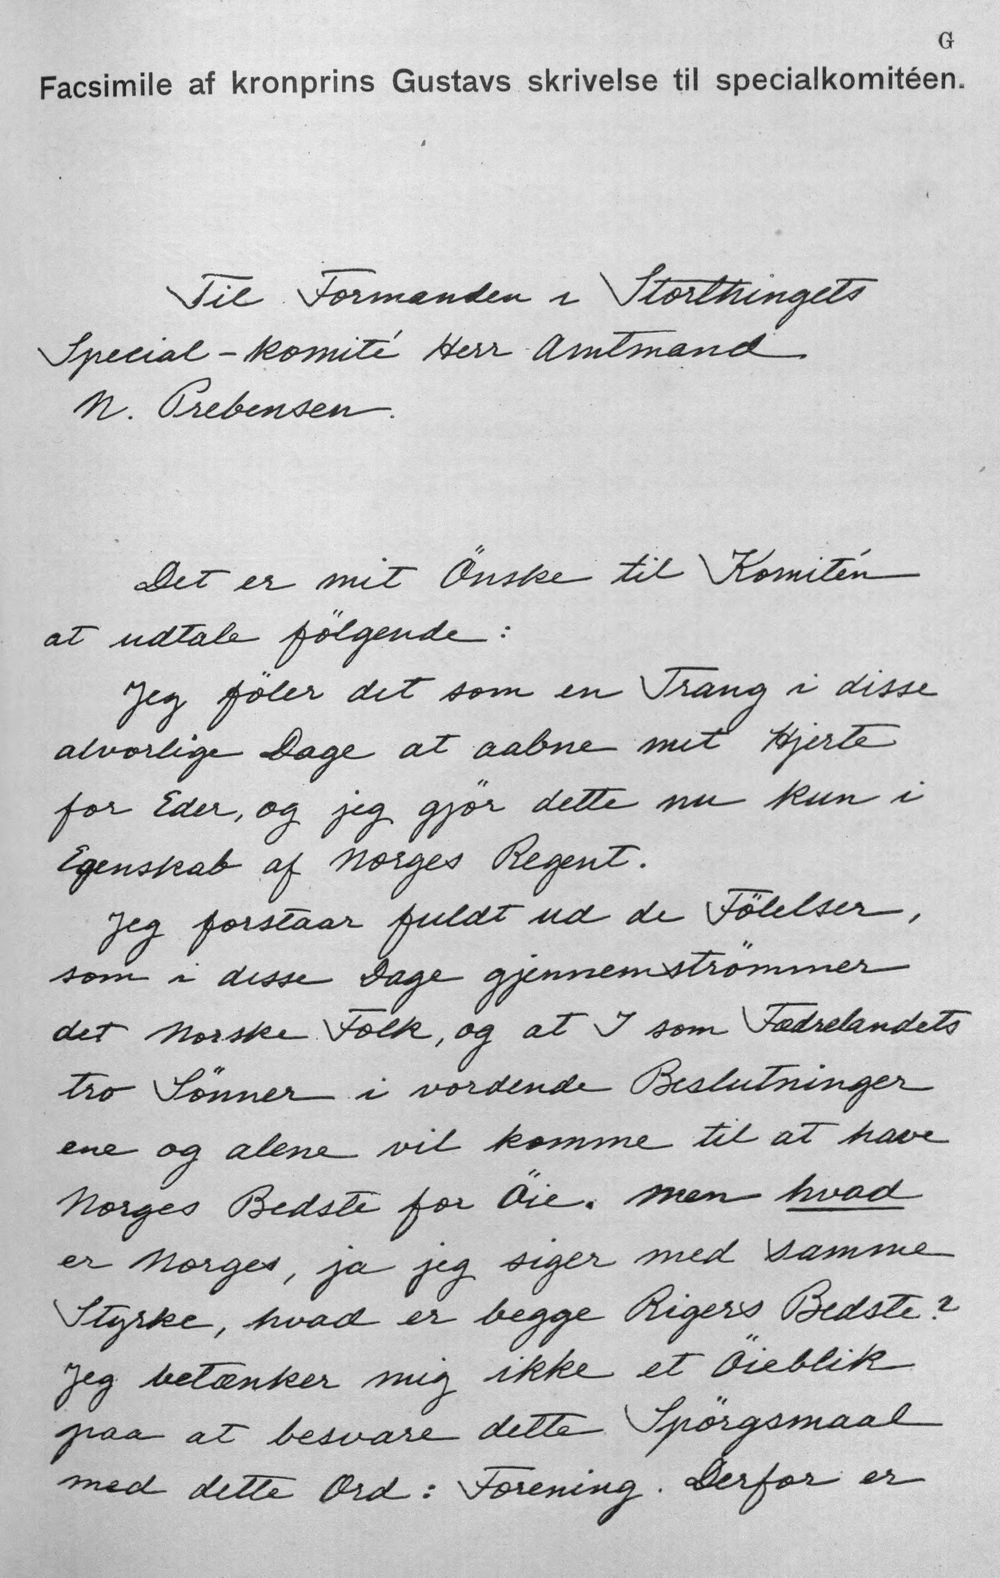 G
Facsimile af kronprins Gustavs skrivelse til specialkomitéen.
Til Formanden i Storthingets
Special-komité Herr Amtmand
N. Prebensen.
Det er mit Önske til Komitén
at udtale fölgende:
Jeg föler det som en Trang i disse
alvorlige Dage at aabne mit Hjerte
for Eder, og jeg gjör dette nu kun i
Egenskab af Norges Regent.
Jeg forstaar fuldt ud de Fölelser,
som i disse Dage gjennemströmmer
det Norske Folk, og at I som Fædrelandets
tro Sönner i vordende Beslutninger
ene og alene vil komme til at have
Norges Bedste for Öie. Men hvad
er Norges, ja jeg siger med samme
Styrke, hvad er begge Rigers Bedste?
Jeg betænker mig ikke et Öieblik
paa at besvare dette Spörgsmaal
med dette Ord: Forening. Derfor er